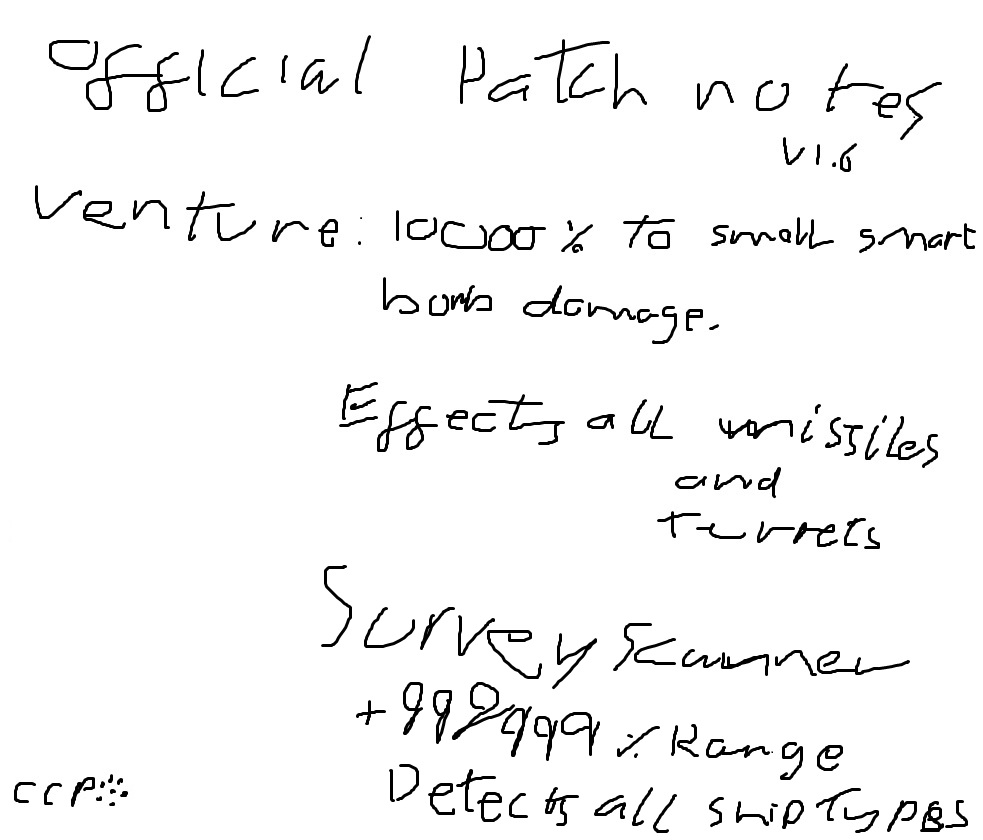 official Patch notes
v1.6
venture: 10000% to small smart
bomb damage.
Effects all missiles
and
turrets
Survey Scanner
+999999% Range
Detects all ship Types
CCP